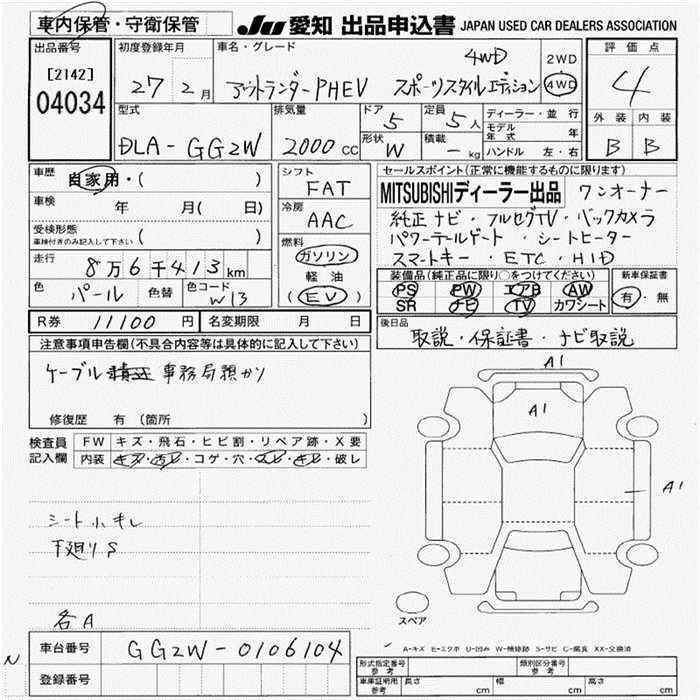 車内保管・守衛保管 JU 愛知 出品申込書 JAPAN USED CAR DEALERS ASSOCIATION
出品番号 初度登録年月 車名・グレード 評価点
[2142] 04034
27年 2月
4WD
アウトランダーPHEV スポーツスタイルエディション
2WD
4WD
4
外装 内装
B B
型式 排気量 ドア 定員 ディーラー・並行
DLA-GG2W 2000cc 5 5人
モデル年式 年
形状 W 積載 - kg ハンドル 左・右
車歴 自家用・( )
車検 年 月( 日)
受検形態
車検付きのみ記入して下さい ( )
走行 8万6千413km
色 パール 色替 色コード W13
シフト
FAT
冷房
AAC
燃料
ガソリン
軽油
(EV)
セールスポイント(正常に機能するものに限ります)
MITSUBISHIディーラー出品 ワンオーナー
純正ナビ・フルセグTV・バックカメラ
パワーテールゲート・シートヒーター
スマートキー・ETC・HID
装備品(純正品に限り○をつけてください) 新車保証書
PS PW エアB AW 有・無
SR ナビ TV カワシート
R券 11100円 名変期限 月 日
後日品
取説・保証書・ナビ取説
注意事項申告欄(不具合内容等は具体的に記入して下さい)
ケーブル 事務局預かり
修復歴 有(箇所 )
検査員記入欄 FW キズ・飛石・ヒビ割・リペア跡・X要
内装 キズ・汚レ・コゲ・穴・スレ・キレ・破レ
シート小キレ
下廻りS
各A
A1
A1
A1
スペア
A-キズ E-エクボ U-凹み W-補修跡 S-サビ C-腐食 XX-交換済
N
車台番号 GG2W-0106104
登録番号
形式指定番号 参考 類別区分番号 参考
車庫証明用 参考 長さ cm 幅 cm 高さ cm